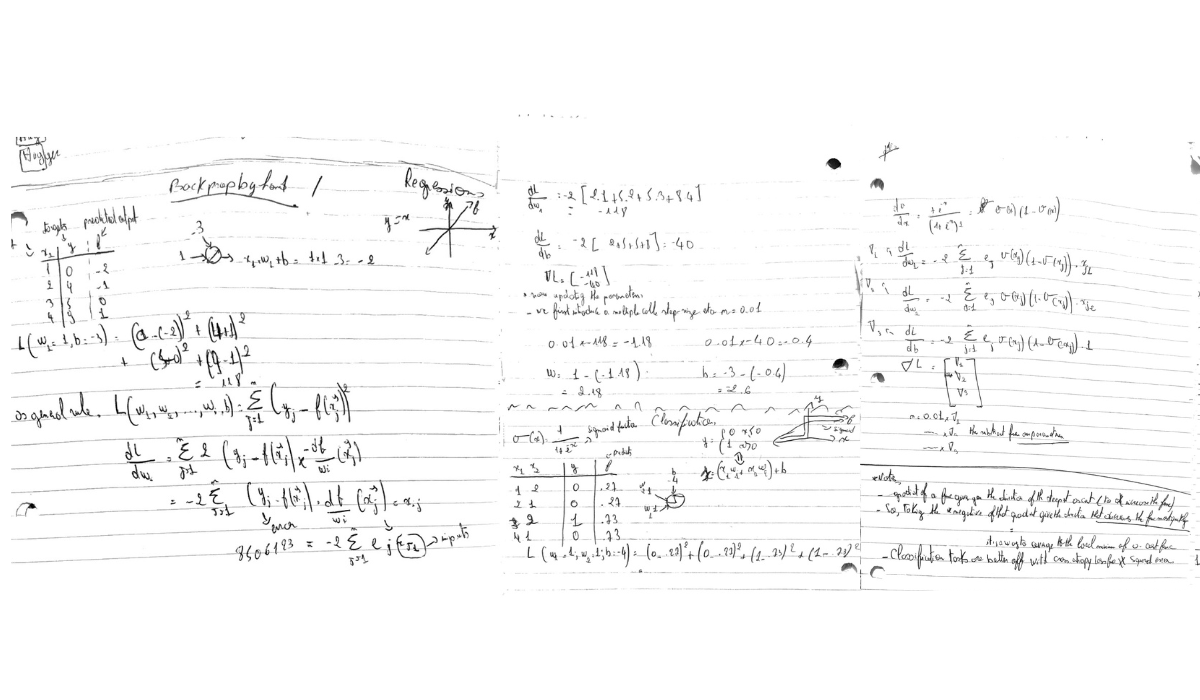 Backprop by hand / Regression
y = x
targets predicted output
x₁ y f
1 0 -2
2 4 -1
3 5 0
4 9 1
-3
1 → → x₁·w₁+b = 1×1-3 = -2
L(w₁=1, b=-3) = (0-(-2))² + (4+1)²
+ (5+0)² + (9-1)²
= 118
as general rule, L(w₁, w₂, ..., wᵢ, b) = Σ (yⱼ - f(x⃗ⱼ))²
dL/dwᵢ = Σ 2 (yⱼ - f(x⃗ⱼ)) × -df/wᵢ (x⃗ⱼ)
= -2 Σ (yⱼ - f(x⃗ⱼ)) · df/wᵢ (x⃗ⱼ) = xᵢⱼ
error
= -2 Σ eⱼ → inputs
dL/dw₁ = -2 [2.1+5.2+5.3+8.4]
= -118
dL/db = -2 [2+5+5+8] = -40
∇L = [-118 -40]
• now updating the parameters
- we first introduce a multiple called step-size eta n = 0.01
0.01 × -118 = -1.18 0.01 × -40 = -0.4
w₁ = 1 - (-1.18) b = -3 - (-0.4)
= 2.18 = -2.6
Classification
σ(x) = 1/1+e⁻ˣ → sigmoid function
y = {0 x≤0
{1 x>0
sigmoid
(x₁w₁ + x₂w₂) + b
x₁ x₂ y f
1 2 0 .27
2 1 0 .27
3 2 1 .73
4 1 0 .73
L(w₁=1, w₂=1, b=-4) = (0-.27)² + (0-.27)² + (1-.73)² + (1-.73)²
dσ/dx = +e⁻ˣ/(1+e⁻ˣ)² = σ(x)(1-σ(x))
∇₁ dL/dw₁ = -2 Σ eⱼ σ(xⱼ)(1-σ(xⱼ))·xⱼ₁
∇₂ dL/dw₂ = -2 Σ eⱼ σ(xⱼ)(1-σ(xⱼ))·xⱼ₂
∇₃ dL/db = -2 Σ eⱼ σ(xⱼ)(1-σ(xⱼ))·1
∇L = [∇₁ ∇₂ ∇₃]
n = 0.01 × ∇₁
— × ∇₂ the subtract from parameters
— × ∇₃
Notes
- gradient of a func gives you the direction of the steepest ascent (to increase the func)
- So, taking the negative of that gradient gives the direction that decreases the func most quickly
to the local minima of cost func
- Classification tasks are better off with cross entropy loss squared error